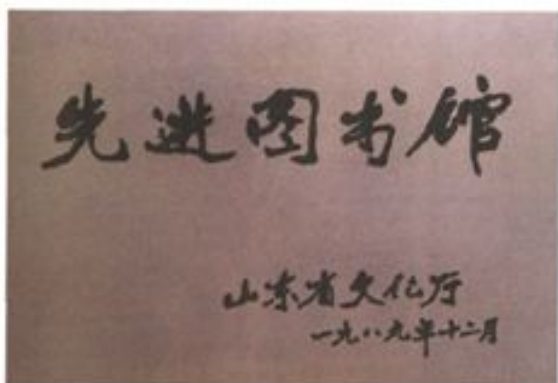 先进图书馆
山东省文化厅
一九八九年十二月